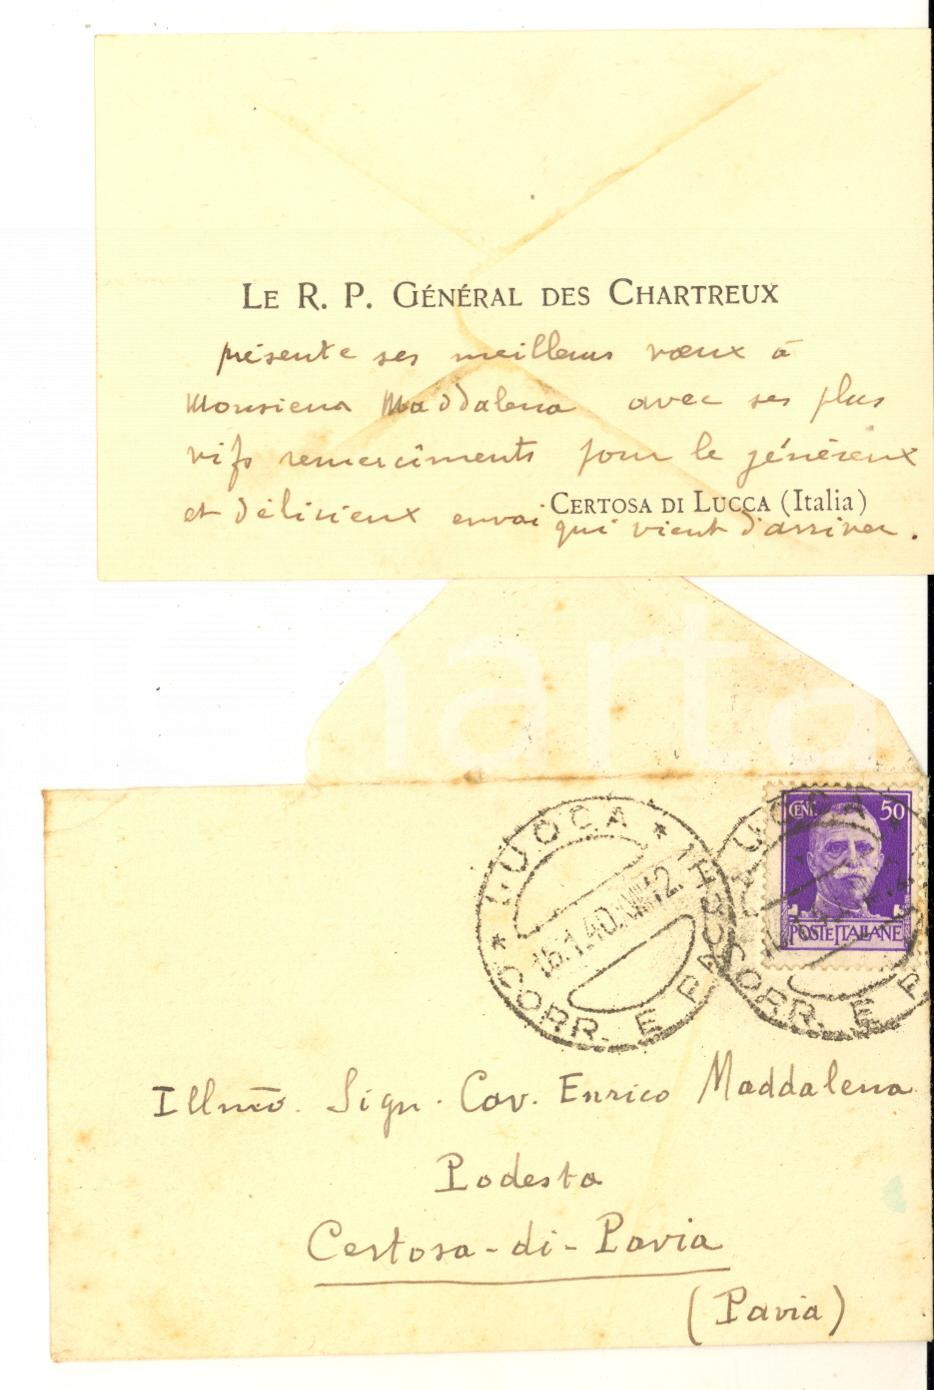 LE R. P. GÉNÉRAL DES CHARTREUX
présente ses meilleurs vœux à
Monsieur Maddalena avec ses plus
vifs remercîments pour le généreux
et délicieux envoi qui vient d'arriver.
CERTOSA DI LUCCA (Italia)
Charta
LUCCA
16.1.40.XVIII 12
CORR. E PACCHI
CENT. 50
POSTE ITALIANE
LUCCA
CORR. E P
Illmo. Sign. Cav. Enrico Maddalena
Podesta
Certosa-di-Pavia
(Pavia)